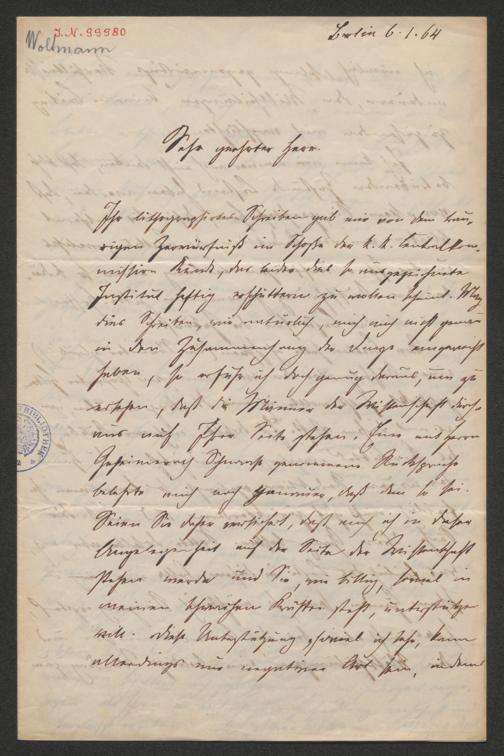 J.N. 99980
Woltmann
Berlin 6.1.64
Sehr geehrter Herr.
Ihr lithographirtes Schreiben gab mir von dem trau-
rigen Zerwürfniß im Schoße der k. k. Centralkom-
mission Kunde, das leider dies so ausgezeichnete
Institut heftig erschüttern zu wollen scheint. Mag
dies Schreiben, wie natürlich, mich auch nicht genau
in den Zusammenhang der Dinge eingeweiht
haben, so erfuhr ich doch genug daraus, um zu
ersehen, daß die Männer der Wissenschaft durch-
aus auf Ihrer Seite stehen. Eine mit Herrn
Geheimerath Schnaase genommene Rücksprache
belehrte mich noch genauer, daß dem so sei.
Seien Sie daher versichert, daß auch ich in dieser
Angelegenheit auf der Seite der Wissenschaft
stehen werde und Sie, wie billig, soviel in
meinen schwachen Kräften steht, unterstützen
will. Diese Unterstützung, soviel ich sehe, kann
allerdings nur negativer Art sein, indem
BIBLIOTHEK